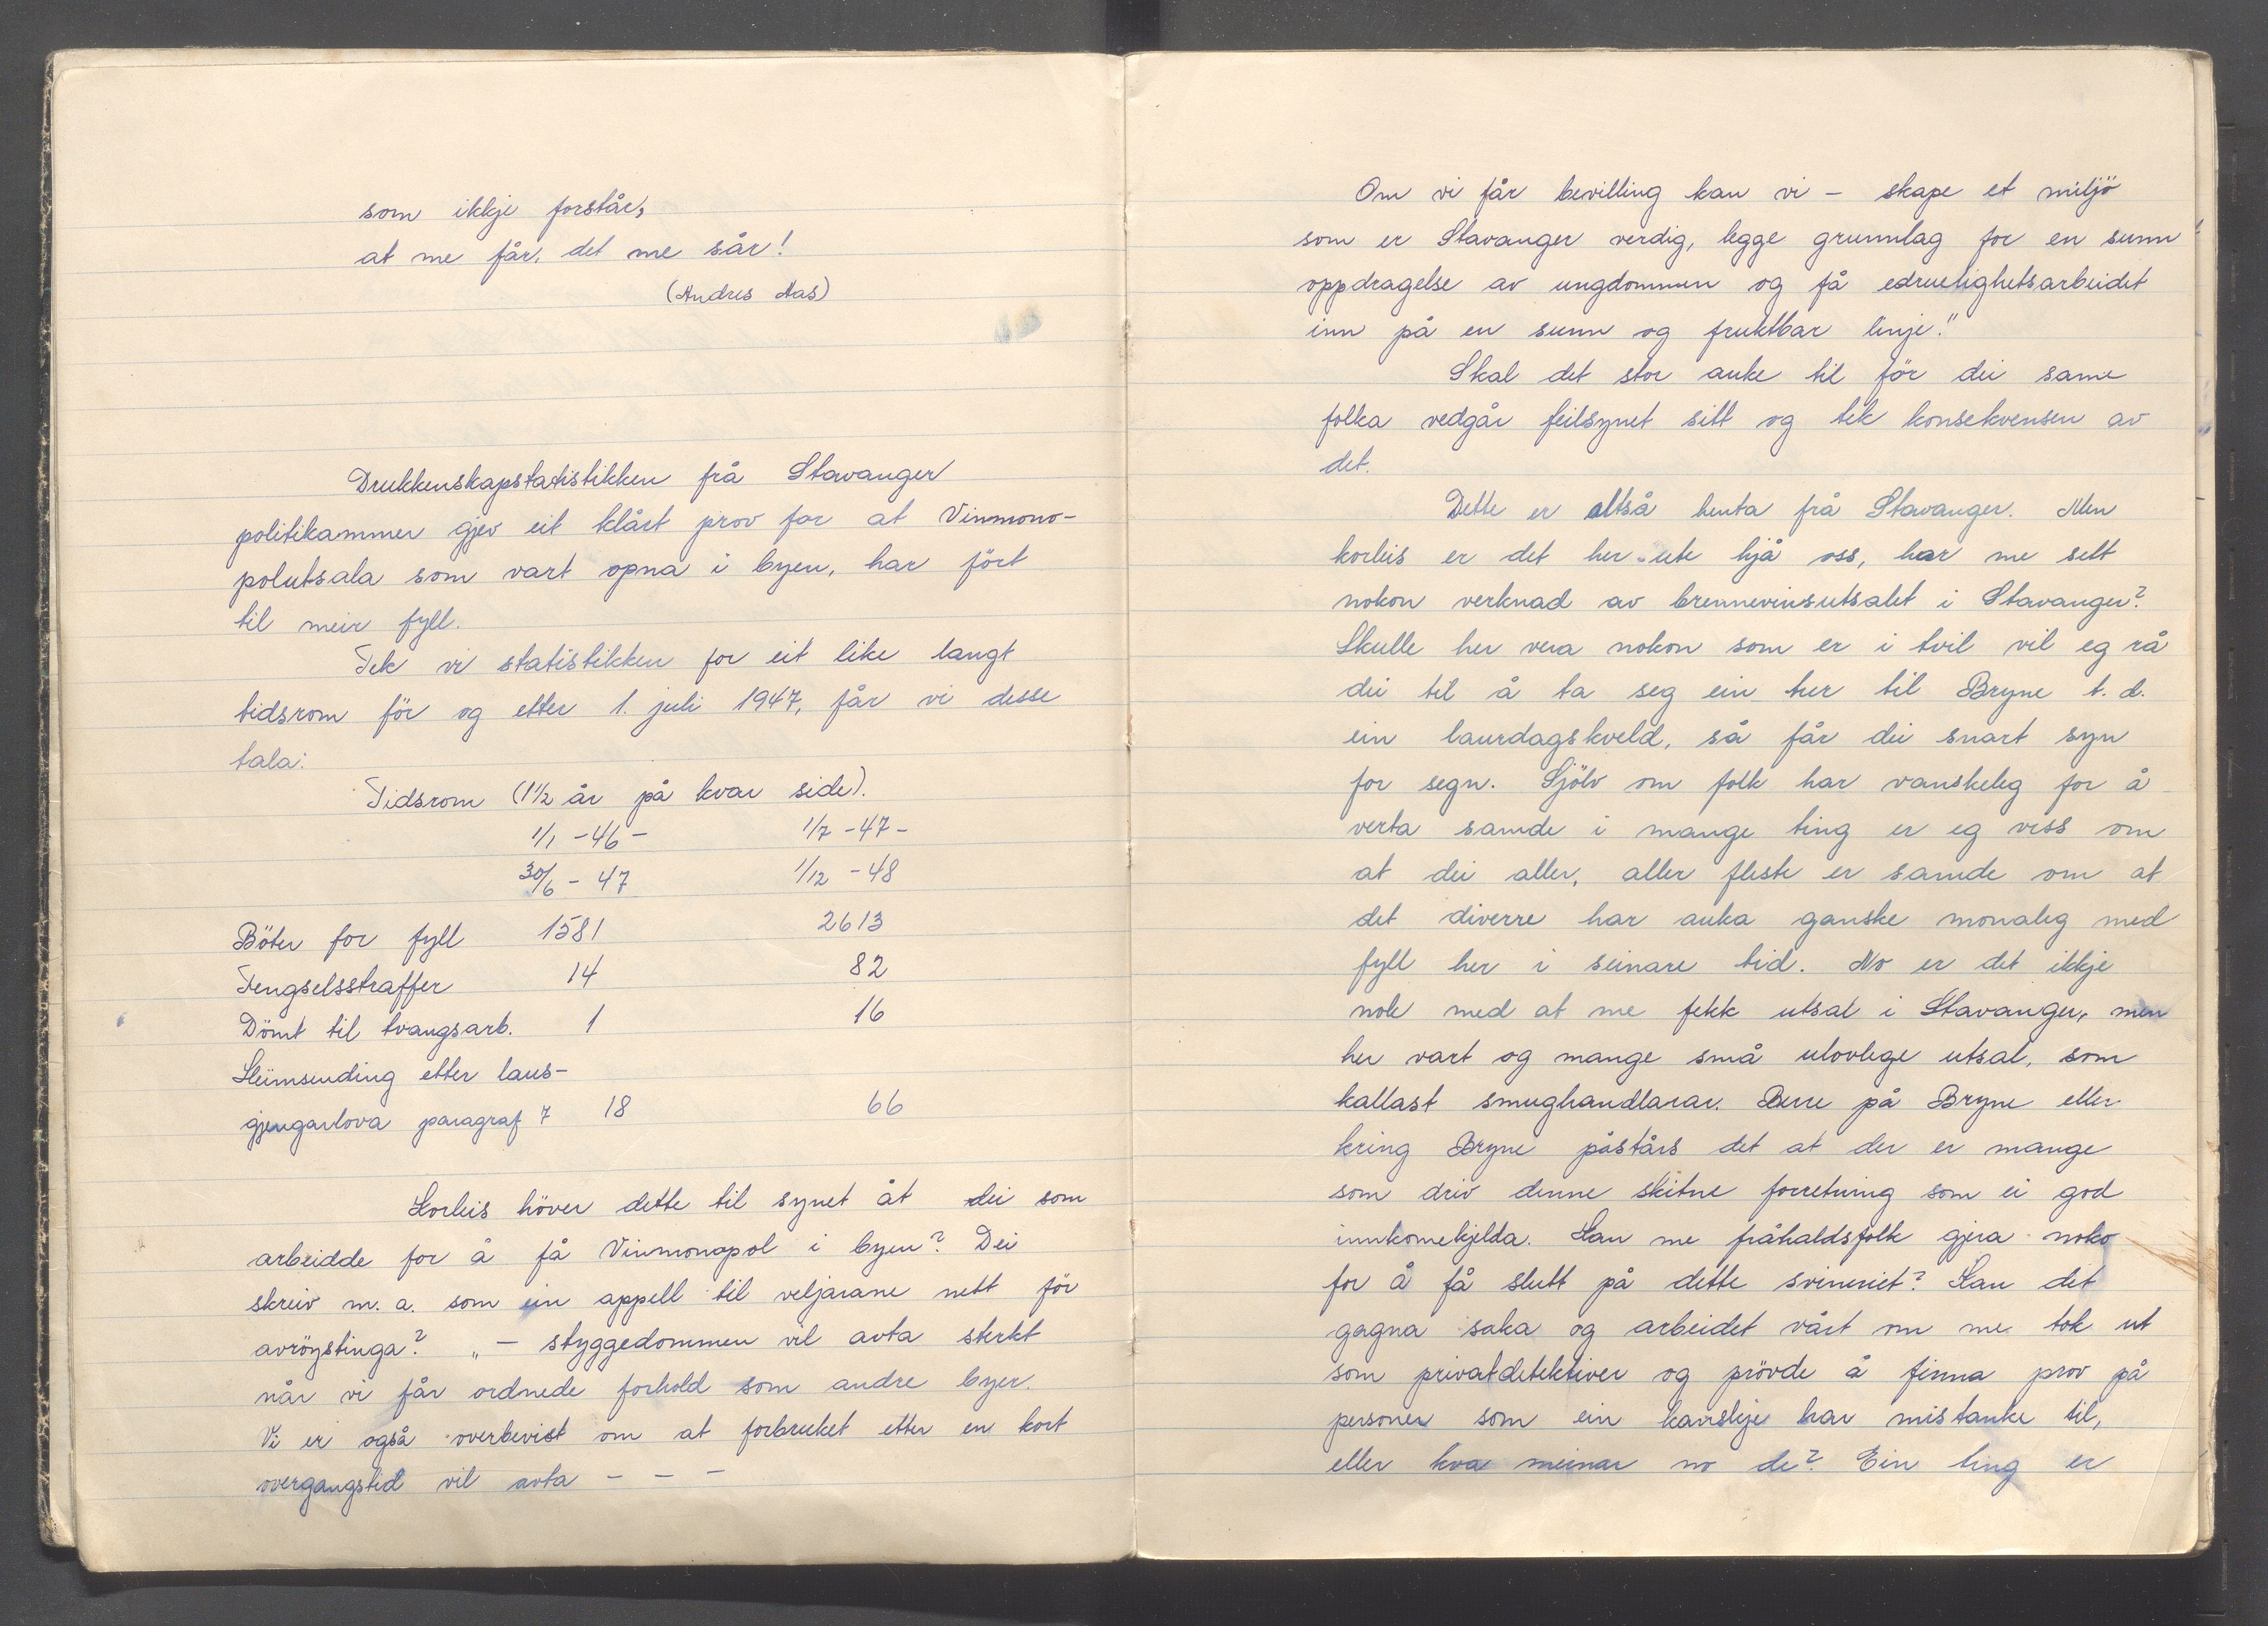 som ikkje forstår,
at me får, det me sår!
(Andres Aas)
Drukkenskapstatistikken frå Stavanger
politikammer gjev eit klårt prov for at Vinmono-
polutsala som vart opna i byen, har fört
til meir fyll.
Tek vi statistikken for eit like langt
tidsrom för og etter 1. juli 1947, får vi desse
tala:
Tidsrom (1½ år på kvar side).
1/1 - 46 - 1/7 - 47 -
30/6 - 47 1/12 - 48
Böter for fyll 1581 2613
Fengselsstraffer 14 82
Dömt til tvangsarb. 1 16
Heimsending etter laus-
gjengarlova paragraf 7 18 66
Korleis höver dette til synet åt dei som
arbeidde for å få Vinmonopol i byen? Dei
skreiv m. a. som ein appell til veljarane nett för
avröystinga? „ - styggedommen vil avta sterkt
når vi får ordnede forhold som andre byer.
Vi er også overbevist om at forbruket etter en kort
overgangstid vil avta - - -
Om vi får bevilling kan vi - skape et miljö
som er Stavanger verdig, legge grunnlag for en sunn
oppdragelse av ungdommen og få edruelighetsarbeidet
inn på en sunn og fruktbar linje."
Skal det stor auke til för dei same
folka vedgår feilsynet sitt og tek konsekvensen av
det.
Dette er altså henta frå Stavanger. Men
korleis er det her ute hjå oss, har me sett
nokon verknad av brennevinsutsalet i Stavanger?
Skulle her vera nokon som er i tvil vil eg rå
dei til å ta seg ein tur til Bryne t. d.
ein laurdagskveld, så får dei snart syn
for segn. Sjölv om folk har vanskeleg for å
verta samde i mange ting er eg viss om
at dei aller, aller fleste er samde om at
det diverre har auka ganske monaleg med
fyll her i seinare tid. No er det ikkje
nok med at me fekk utsal i Stavanger, men
her vart og mange små ulovlege utsal, som
kallast smughandlarar. Berre på Bryne eller
kring Bryne påstårs det at der er mange
som driv denne skitne forretning som ei god
innkomekjelda. Kan me fråhaldsfolk gjera noko
for å få slutt på dette svineriet? Kan det
gagna saka og arbeidet vårt om me tok ut
som privatdetektiver og prövde å finna prov på
personer som ein kanskje har mistanke til,
eller kva meinar no de? Ein ting er